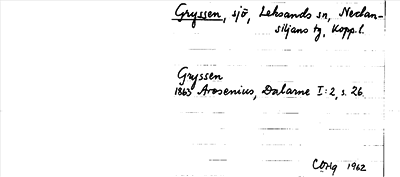 Gryssen, sjö, Leksands sn, Nedan-
siljans tg, Kopp.l.
Gryssen
1863 Arosenius, Dalarne I:2, s. 26
COHg 1962